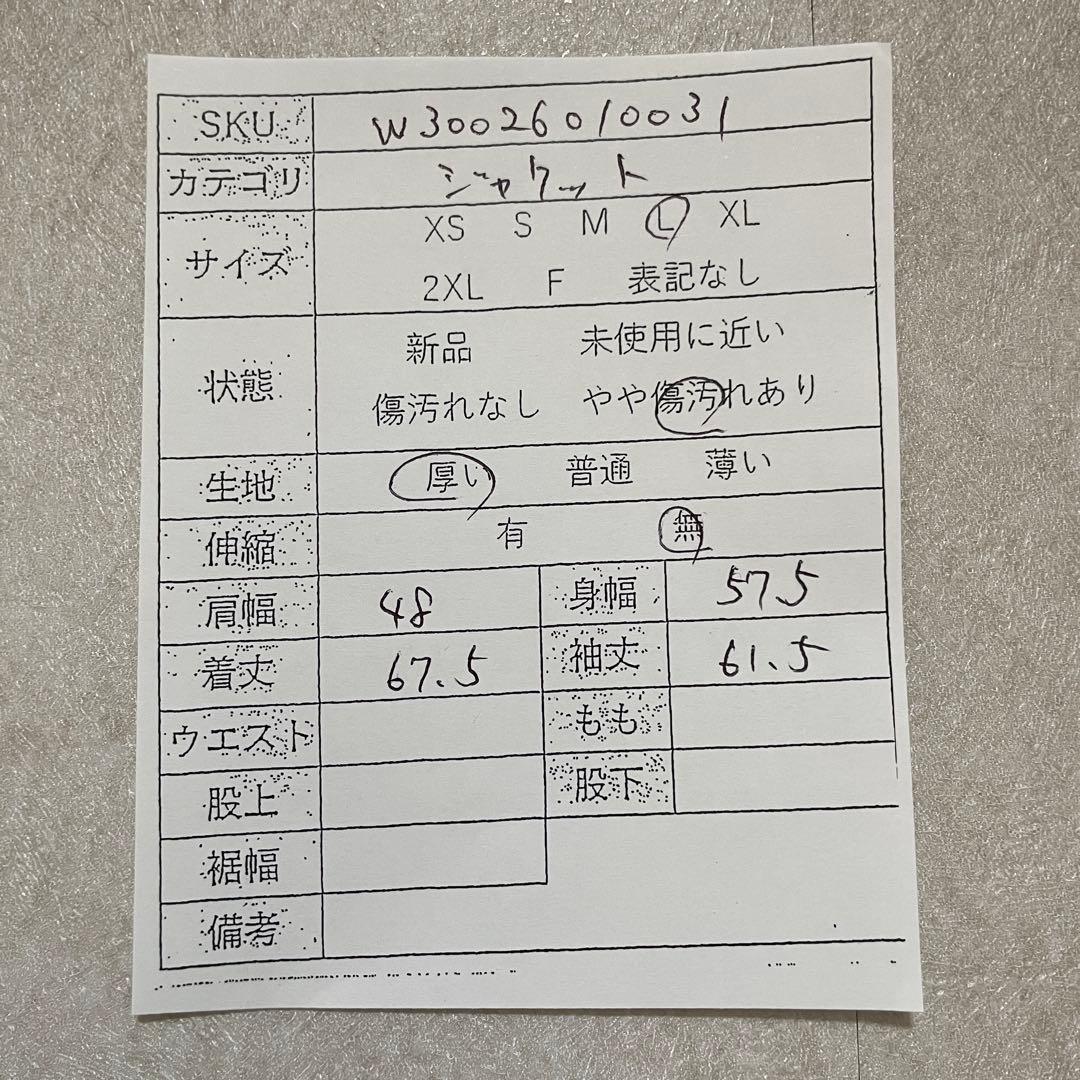 SKU W30026010031
カテゴリ ジャケット
サイズ XS S M L XL
2XL F 表記なし
状態 新品 未使用に近い
傷汚れなし やや傷汚れあり
生地 厚い 普通 薄い
伸縮 有 無
肩幅 48 身幅 57.5
着丈 67.5 袖丈 61.5
ウエスト もも
股上 股下
裾幅
備考